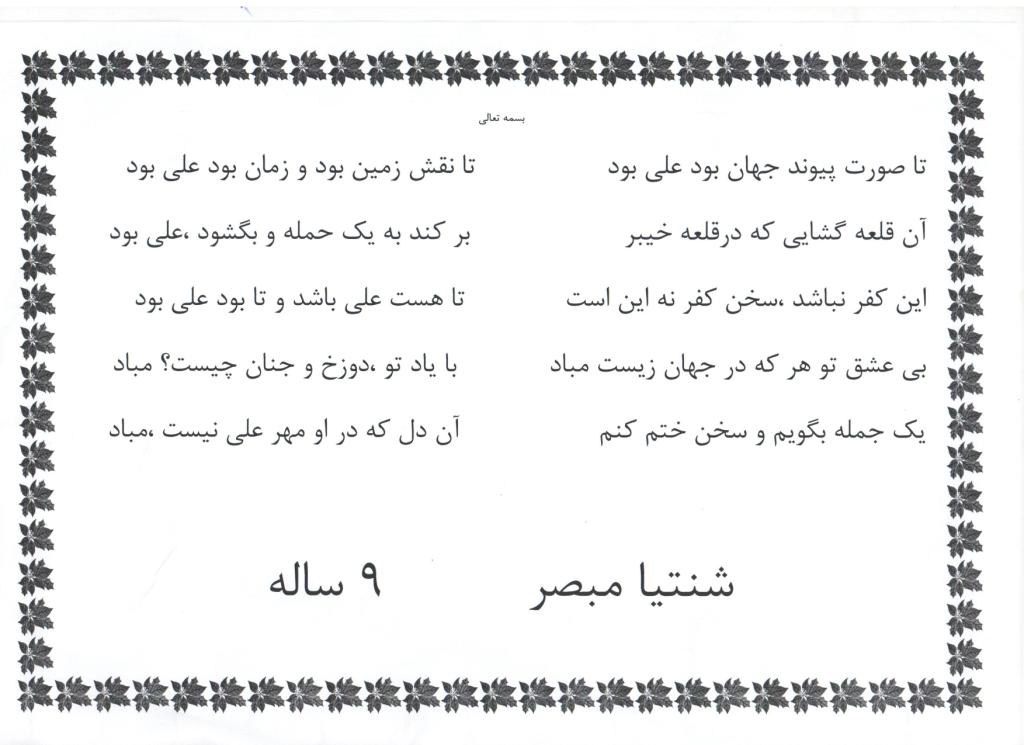 بسمه تعالی
تا صورت پیوند جهان بود علی بود تا نقش زمین بود و زمان بود علی بود
آن قلعه گشایی که درقلعه خیبر بر کند به یک حمله و بگشود ،علی بود
این کفر نباشد ،سخن کفر نه این است تا هست علی باشد و تا بود علی بود
بی عشق تو هر که در جهان زیست مباد با یاد تو ،دوزخ و جنان چیست؟ مباد
یک جمله بگویم و سخن ختم کنم آن دل که در او مهر علی نیست ،مباد
شنتیا مبصر ۹ ساله